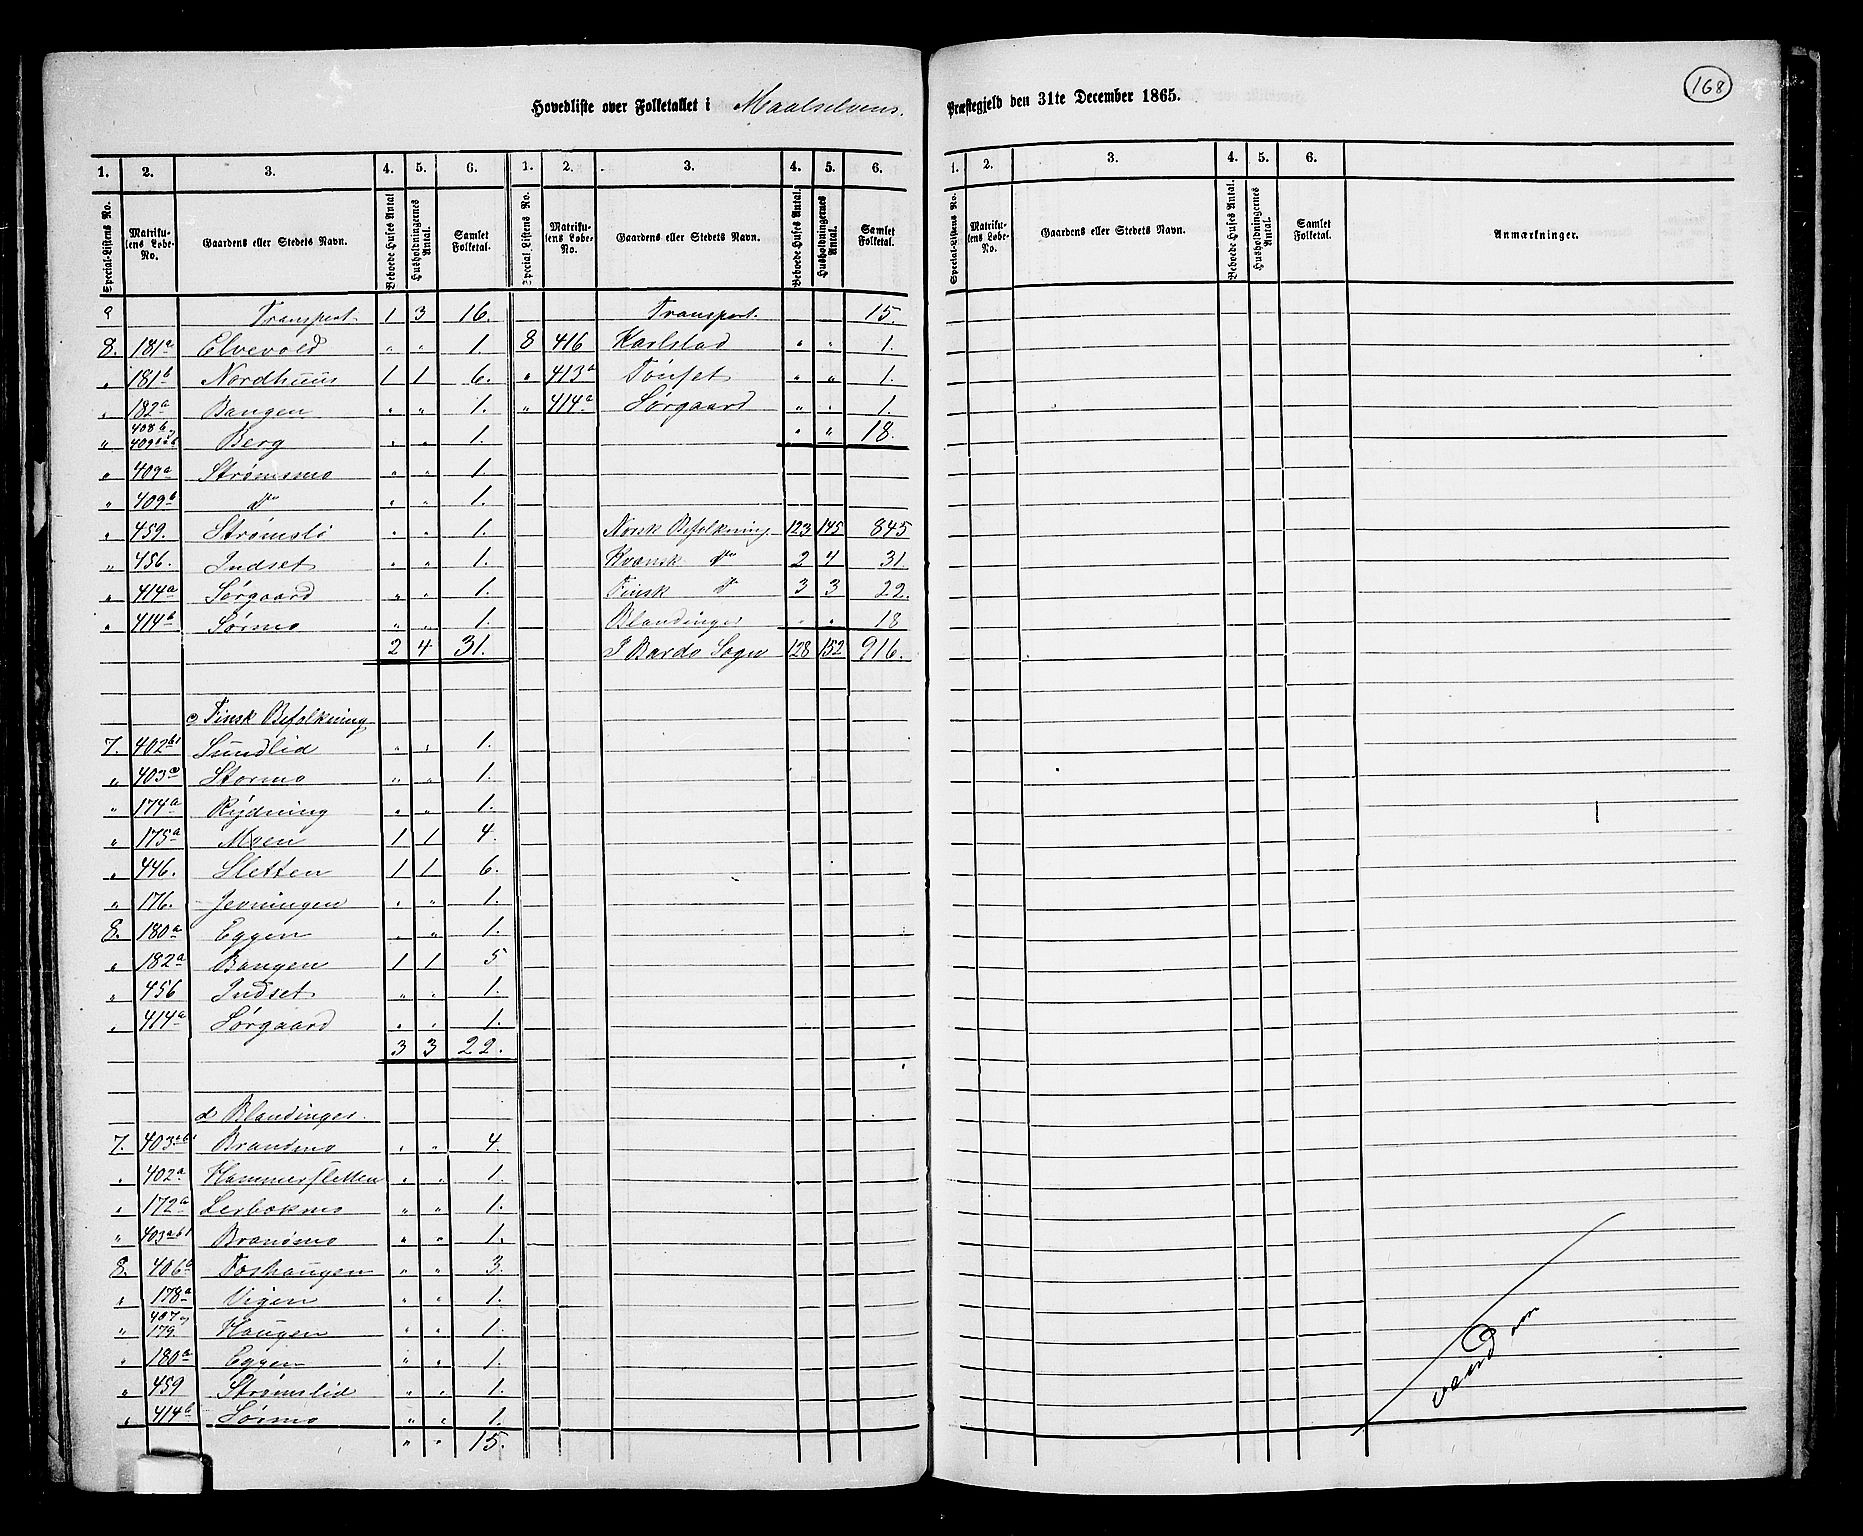 168
Hovedliste over Folketallet i Maalselvens Præstegjeld den 31te December 1865.
1. 2. 3. 4. 5. 6. 1. 2. 3. 4. 5. 6.
Special-Listens No. Matrikulens Løbe-No. Gaardens eller Stedets Navn. Beboede Huses Antal Husholdningernes Antal. Samlet Folketal. Special Listens No. Matrikulens Løbe-No. Gaardens eller Stedets Navn. Beboede Huses Antal. Husholdningernes Antal. Samlet Folketal.
Transport 1 3 16.
8. 181a Elvevold " " 1.
" 181b Nordhuus 1 1 6.
" 182a Bangen " " 1.
" 408b og 409 Berg " " 1.
" 409a Strømsmo " " 1
" 409b do " " 1.
" 459. Strømsli " " 1.
" 456. Indset " " 1.
" 414a Sørgaard " " 1.
" 414b Sørmo " " 1.
2 4 31.
c Finsk Befolkning
7. 402b1 Sundlid " " 1.
" 403c Stormo " " 1.
" 174a Rydning " " 1.
" 175a Moen 1 1 4.
" 446. Sletten 1 1 6.
" 176. Jevningen " " 1.
8. 180a Eggen " " 1.
" 182a Bangen 1 1 5
" 456 Indset " " 1.
" 414a Sørgaard " " 1.
3 3 22.
d Blandinger.
7. 403ab1 Brandmo " " 4.
" 402a Hammersletten " " 1.
" 172a Lerbakmo " " 1.
" 403ab1 Brandmo " " 1.
8. 406a Foshaugen " " 3.
" 178a Vigen " " 1.
" 407 og 179. Haugen " " 1.
" 180a Eggen " " 1.
" 459 Strømslid " " 1.
" 414b Sørmo " " 1.
" " 15.
Transport. 15.
8 416 Karlstad " " 1.
" 413a Tønset " " 1.
" 414a Sørgaard " " 1.
" " 18.
Norsk Befolkning 123 145 845
Kvænsk do 2 4 31.
Finsk do 3 3 22.
Blandinger " " 18
I Bardo Sogn 128 152 916.
1. 2. 3. 4. 5. 6.
Special-Listens No. Matrikulens Løbe-No. Gaardens eller Stedets Navn. Beboede Huses Antal. Husholdningernes Antal. Samlet Folketal. Anmærkninger.